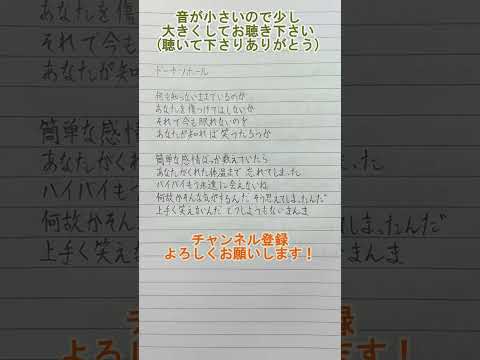 音が小さいので少し
大きくしてお聴き下さい
(聴いて下さりありがとう)
ドーナツホール
何も知らないままでいるのが
あなたを傷つけてはしないか
それで今も眠れないのを
あなたが知れば笑うだろうか
簡単な感情ばっか数えていたら
あなたがくれた体温まで忘れてしまった
バイバイもう永遠に会えないね
何故かそんな気がするんだそう思えてしまったんだ
上手く笑えないんだどうしようもないまんま
チャンネル登録
よろしくお願いします!